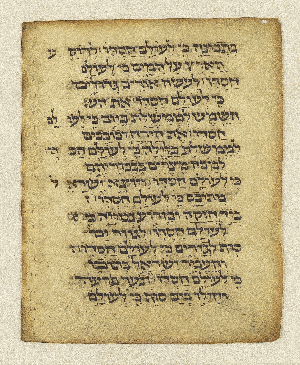 בתבונה כי לעולם חסדו לרוק ע
הארץ על המים כי לעולם
חסדו לעשה אורים גדולים
כי לעולם חסדו את
השמש לממשלת ביום כי לעו לם
חסדו את הירח וכוכבים
לממשלות בלילה כי לעולם חס דו
למכה מצרים בבכוריהם
כי לעולם חסדו ויוצא ישרא ל
מתוכם כי לעולם חסדו
ביד חזקה ובזרוע נטויה כי
לעולם חסדו לגזר ים
סוף לגזרים כי לעולם חסדו
והעביר ישראל בתוכו
כי לעולם חסדו ונער פרעה
וחילו בים סוף כי לעולם